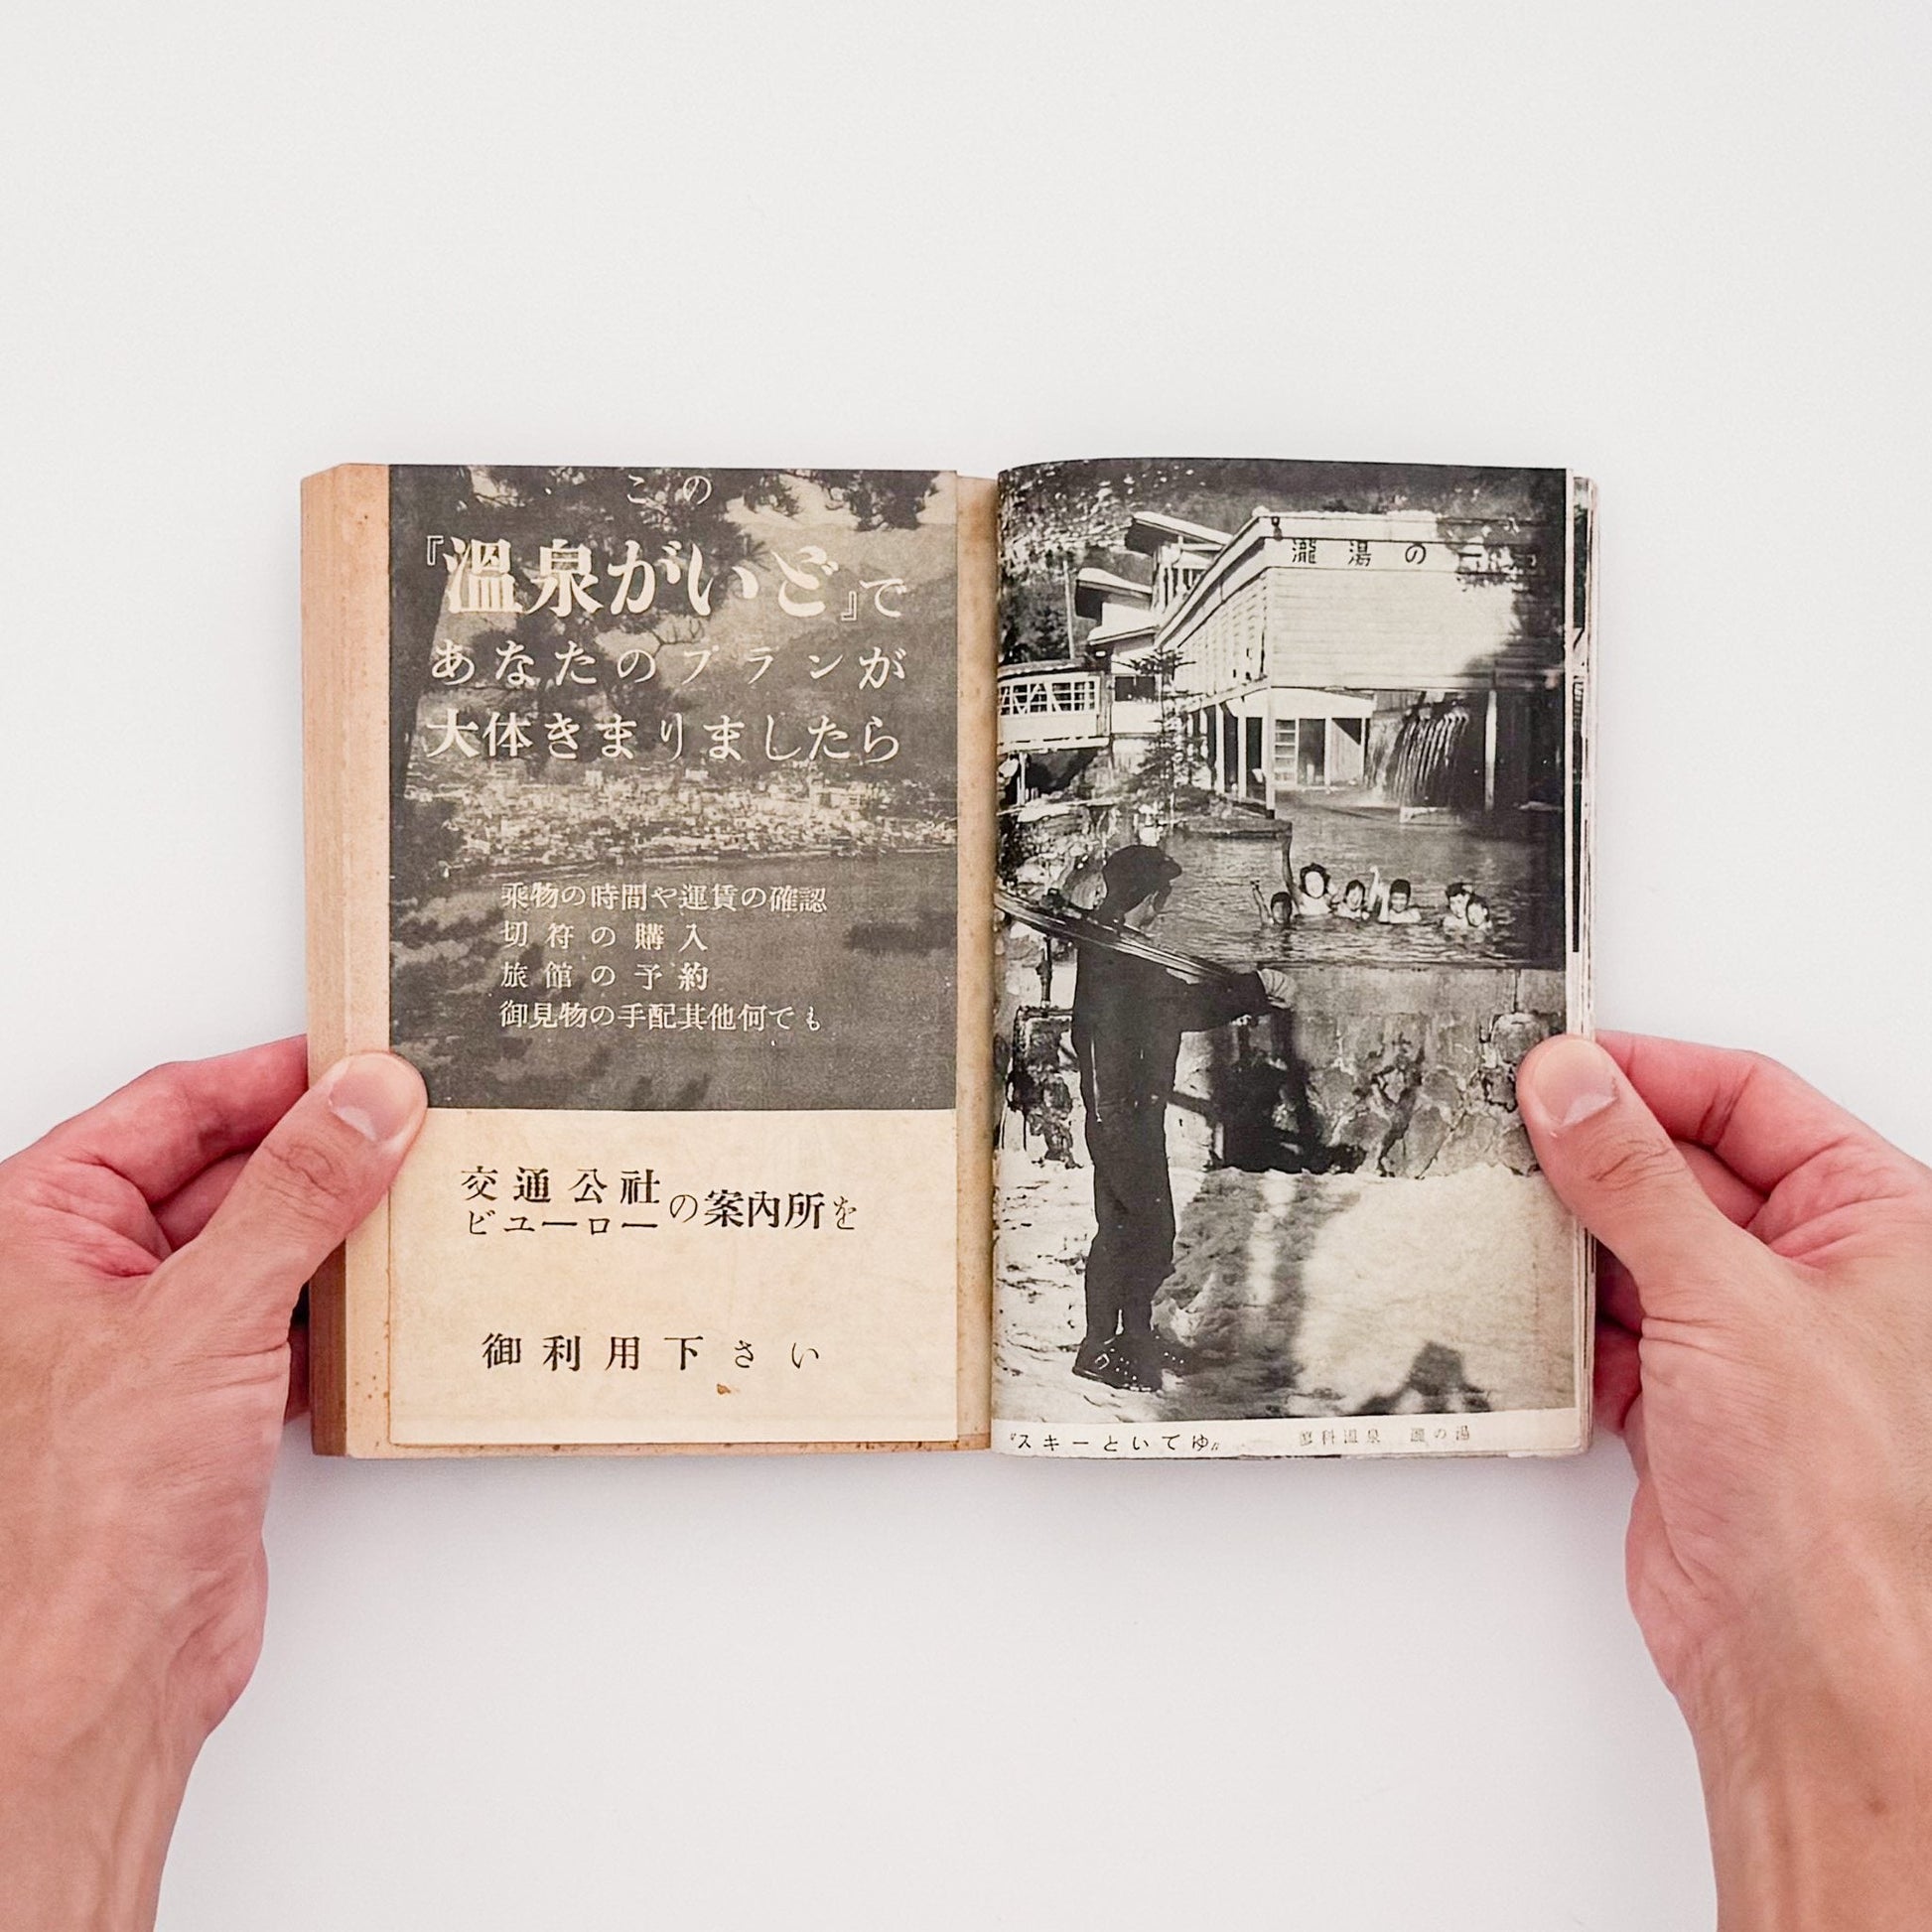 この
『温泉がいど』で
あなたのプランが
大体きまりましたら
乗物の時間や運賃の確認
切符の購入
旅館の予約
御見物の手配其他何でも
交通公社
ビユーロー
の案内所を
御利用下さい
瀧湯の
〝スキーといでゆ〟
蓼科温泉 瀧の湯